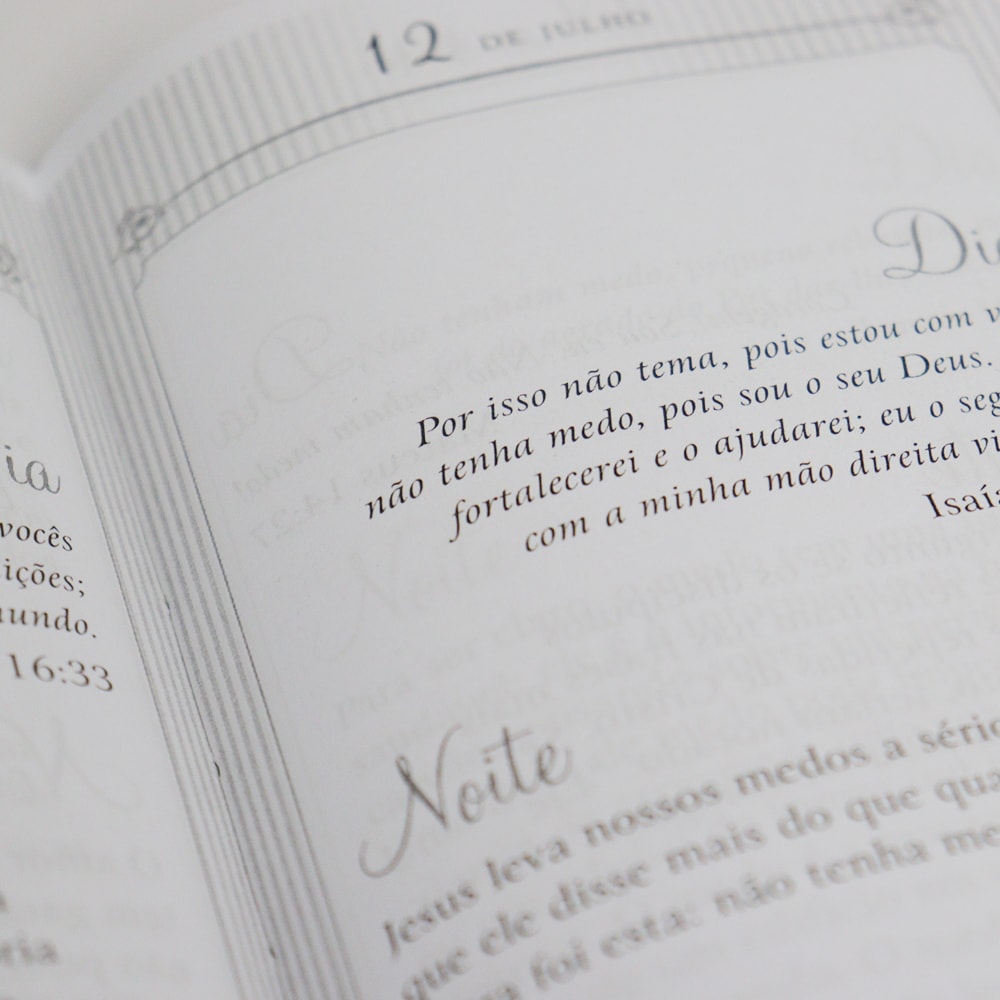 ia
vocês
ições;
mundo.
16:33
ria
12 DE JULHO
Dia
Por isso não tema, pois estou com v
não tenha medo, pois sou o seu Deus.
fortalecerei e o ajudarei; eu o seg
com a minha mão direita vi
Isaía
Noite
Jesus leva nossos medos a sério
que ele disse mais do que qua
foi esta: não tenha me